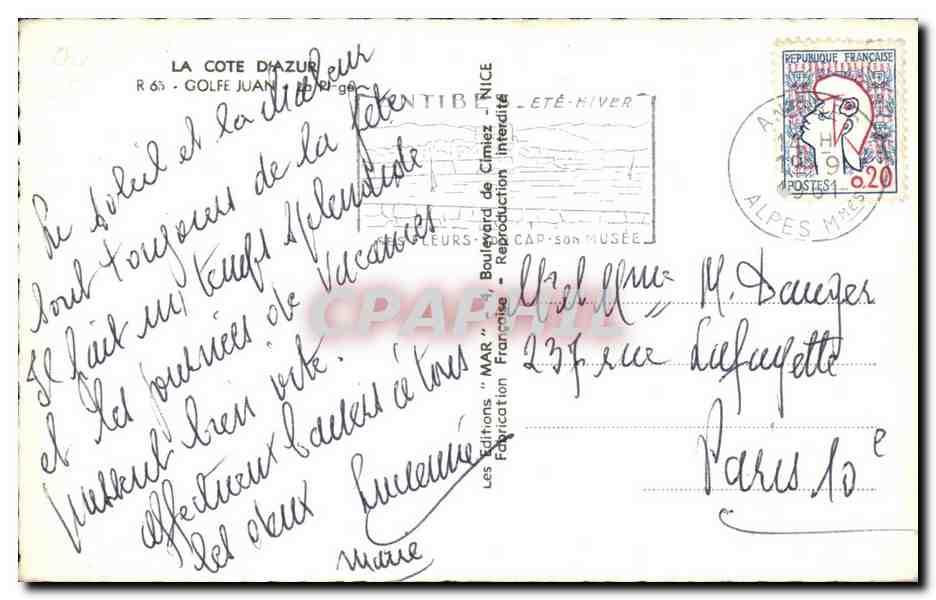 LA COTE D'AZUR
R 65 - GOLFE JUAN
Le soleil et la chaleur
sont toujours de la fête
Il fait un temps splendide
et les journées de vacances
passent bien vite.
affectueux baisers à tous
les deux Lucienne
Marie
Les Editions "MAR" - 4, Boulevard de Cimiez - NICE
Fabrication Française - Reproduction interdite
ANTIBES ETÉ-HIVER
SES FLEURS-son CAP-son MUSÉE
REPUBLIQUE FRANÇAISE
POSTES 0.20
ALPES Mmes
Mr et Mme M. Danger
237 rue Lafayette
Paris 10e
CPAPHIL